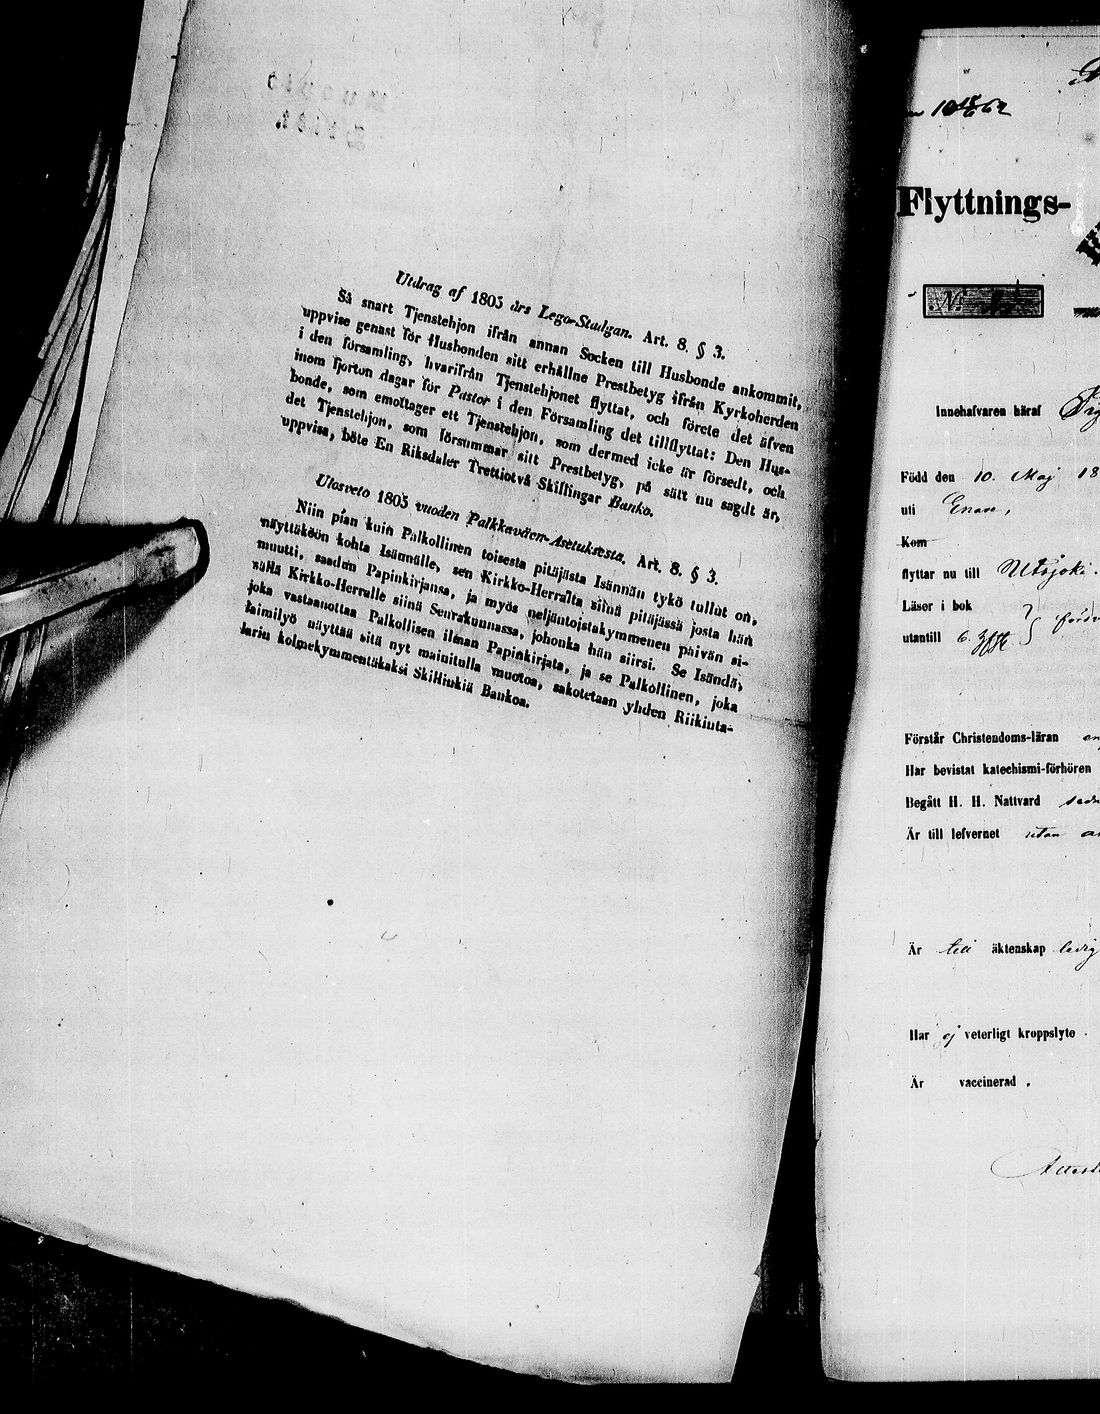 Utdrag af 1805 års Lego-Stadgan. Art. 8. § 3.
Så snart Tjenstehjon ifrån annan Socken till Husbonde ankommit,
uppvise genast för Husbonden sitt erhållne Prestbetyg ifrån Kyrkoherden
i den församling, hvarifrån Tjenstehjonet flyttat, och förete det äfven
inom fjorton dagar för Pastor i den Församling det tillflyttat: Den Hus-
bonde, som emottager ett Tjenstehjon, som dermed icke är försedt, och
det Tjenstehjon, som försummar sitt Prestbetyg, på sätt nu sagdt är,
uppvisa, böte En Riksdaler Trettiotvå Skillingar Banko.
Ulosveto 1805 vuoden Palkkaväen-Asetuksesta. Art. 8. § 3.
Niin pian kuin Palkollinen toisesta pitäjästä Isännän tykö tullut on,
näyttäköön kohta Isännälle, sen Kirkko-Herralta siinä pitäjässä josta hän
muutti, saadun Papinkirjansa, ja myös neljäntoistakymmenen päivän si-
sällä Kirkko-Herralle siinä Seurakunnassa, johonka hän siirsi. Se Isändä,
joka vastaanottaa Palkollisen ilman Papinkirjata, ja se Palkollinen, joka
laimilyö näyttää sitä nyt mainitulla muotoa, sakotetaan yhden Riikinta-
larin kolmekymmentäkaksi Skillinkiä Bankoa.
Flyttnings-
N:
Innehafvaren häraf
Född den 10. Maj 18
uti Enare,
Kom
flyttar nu till Utsjoki.
Läser i bok
utantill 6.
Förstår Christendoms-läran
Har bevistat katechismi-förhören
Begått H. H. Nattvard
Är till lefvernet utan
Är till äktenskap ledig
Har ej veterligt kroppslyte .
Är vaccinerad .